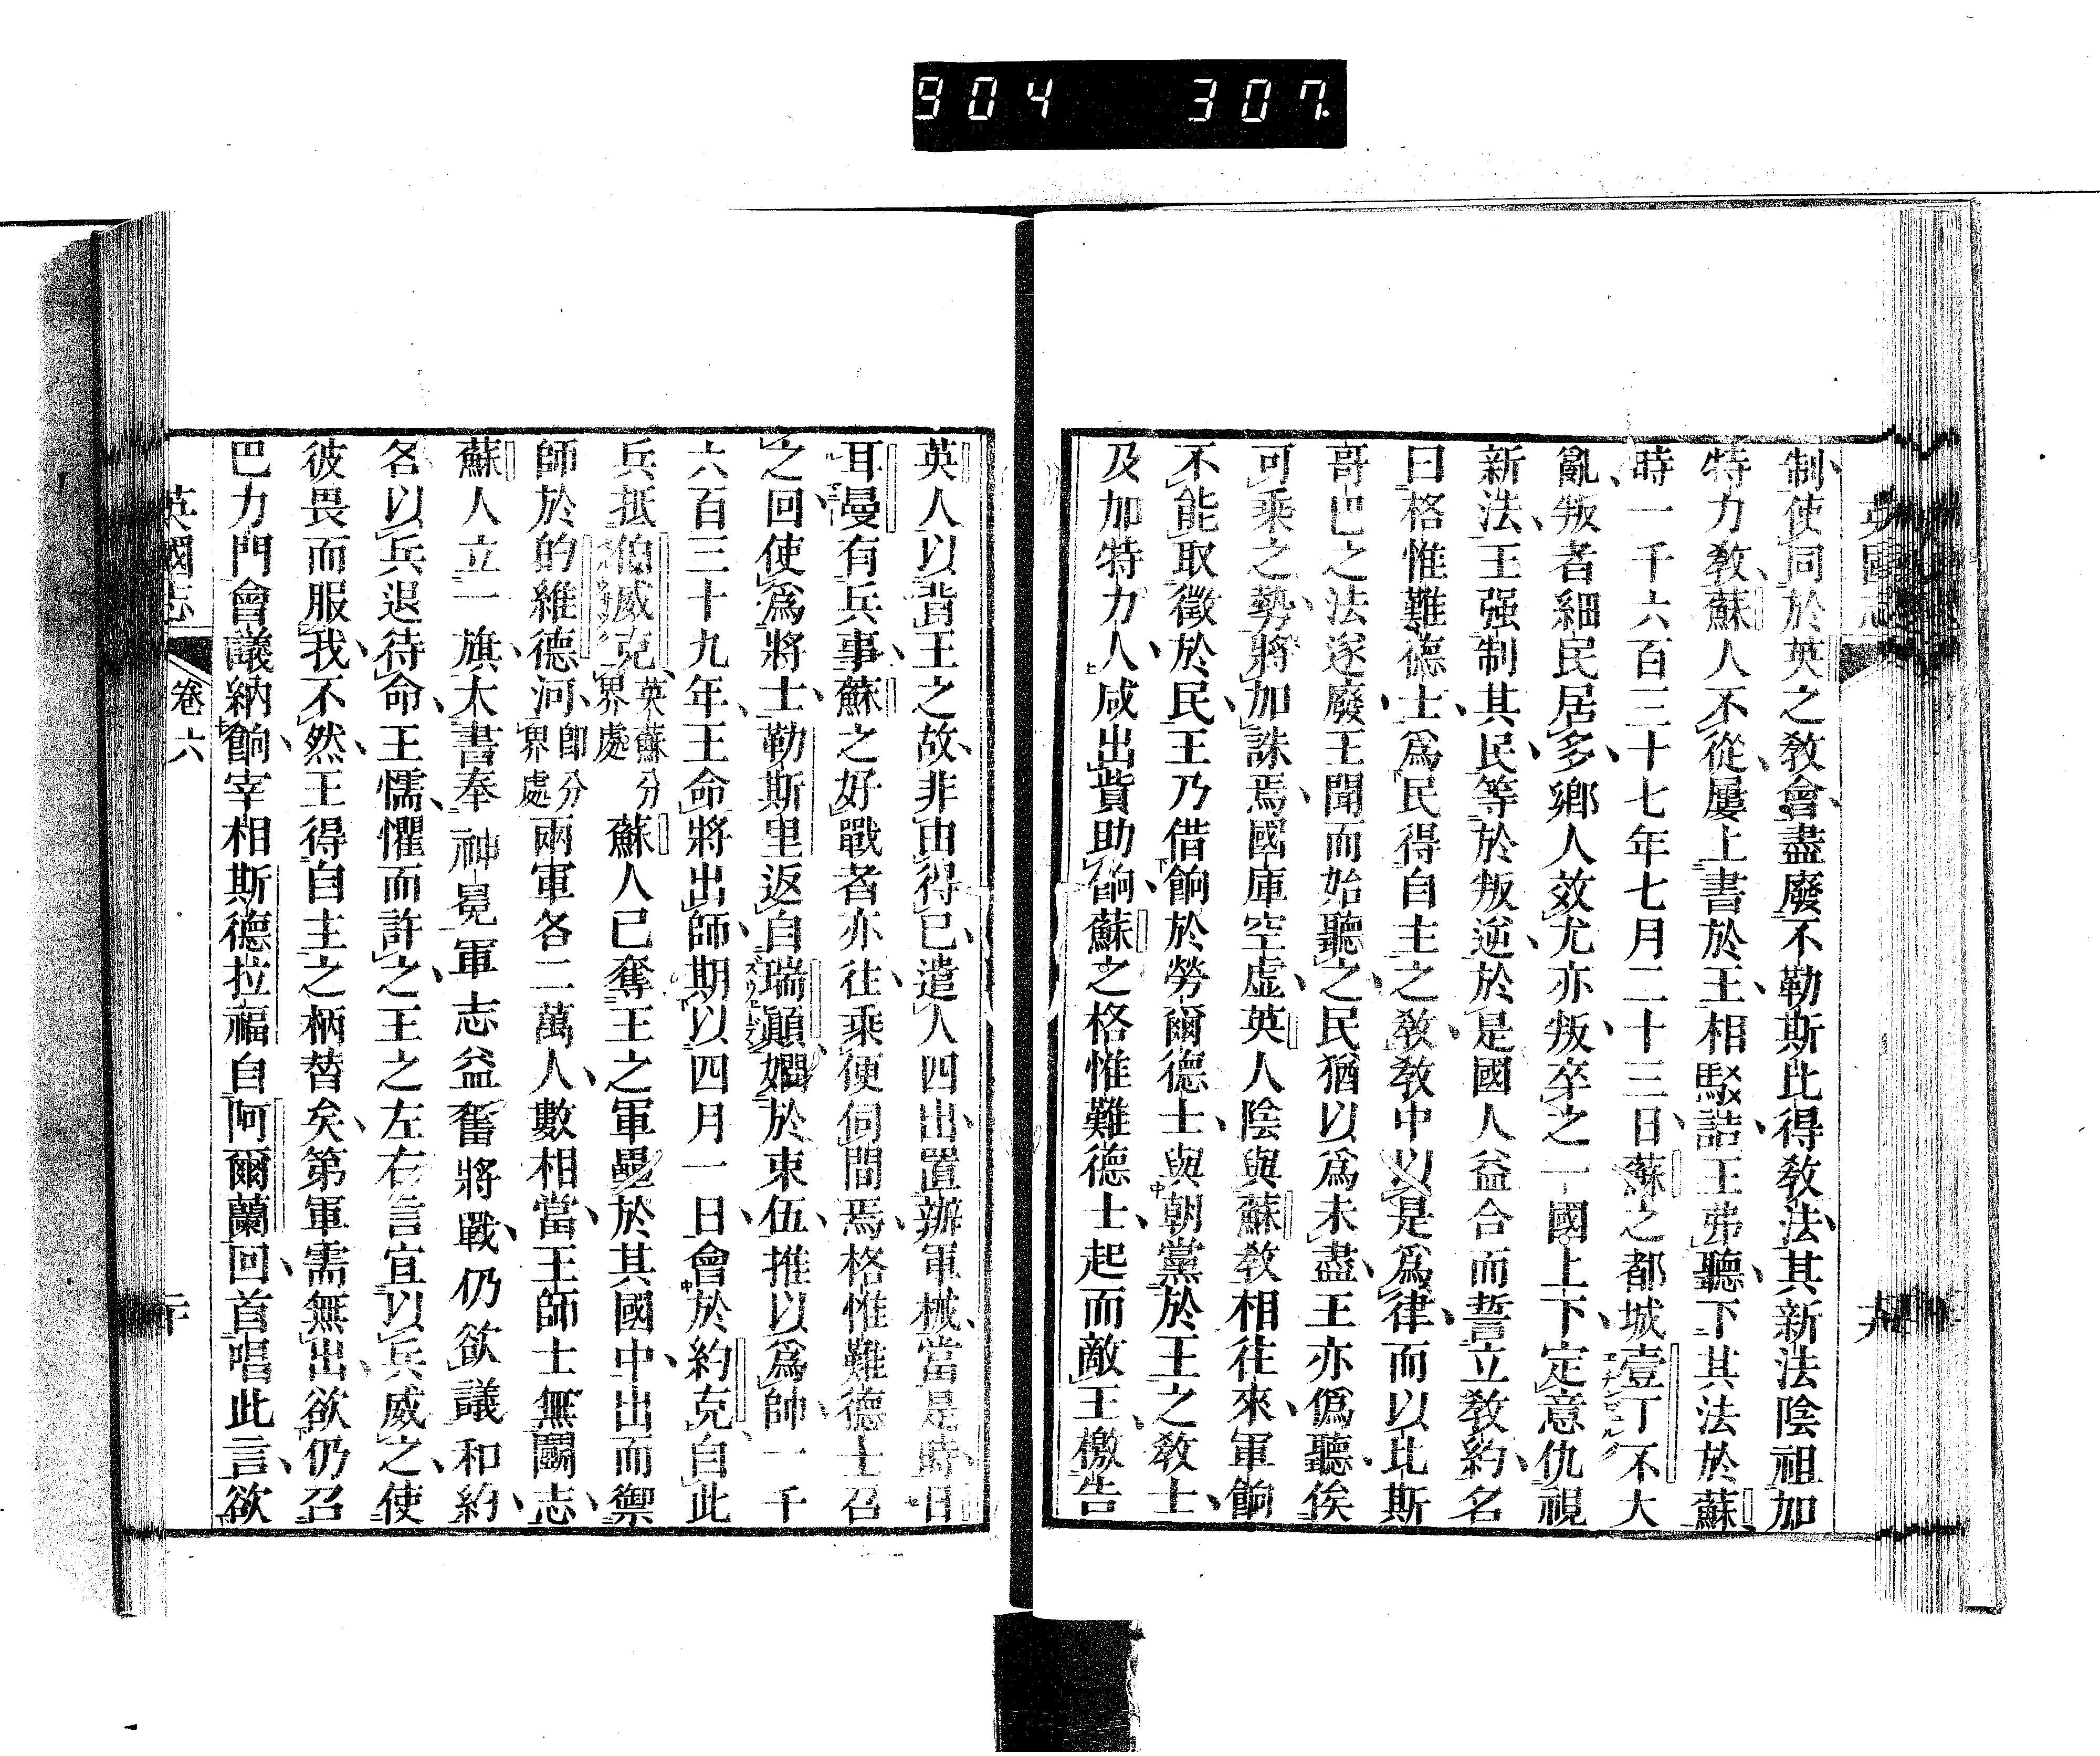 904 307
英國志
制使同於英之敎會盡廢不勒斯比得敎法其新法陰祖加
特力敎蘇人不從屢上書於王相駁詰王弗聽下其法於蘇
時一千六百三十七年七月二十三日蘇之都城壹丁不大
亂叛者細民居多鄉人效尤亦叛卒之一國上下定意仇視
新法王强制其民等於叛逆於是國人益合而誓立敎約名
曰格惟難德士爲民得自主之敎敎中以是爲律而以比斯
哥巴之法遂廢王聞而始聽之民猶以爲未盡王亦僞聽俟
可乘之勢將加誅焉國庫空虛英人陰與蘇敎相往來軍餉
不能取徵於民王乃借餉於勞爾德士與朝黨於王之敎士
及加特力人咸出貲助餉蘇之格惟難德士起而敵王檄告
英人以背王之故非由得已遣人四出置辦軍械當是時日
耳曼有兵事蘇之好戰者亦往乘便伺間焉格惟難德士召
之回使爲將士勒斯里返自瑞顚嫺於束伍推以爲帥一千
六百三十九年王命將出師期以四月一日會於約克自此
兵抵伯威克英蘇分界處蘇人已奪王之軍壘於其國中出而禦
師於的維德河卽分界處兩軍各二萬人數相當王師士無鬬志
蘇人立一旗大書奉神冕軍志益奮將戰仍欲議和約
各以兵退待命王懦懼而許之王之左右言宜以兵威之使
彼畏而服我不然王得自主之柄替矣第軍需無出欲仍召
巴力門會議納餉宰相斯德拉福自阿爾蘭回首唱此言欲
英國志 卷六